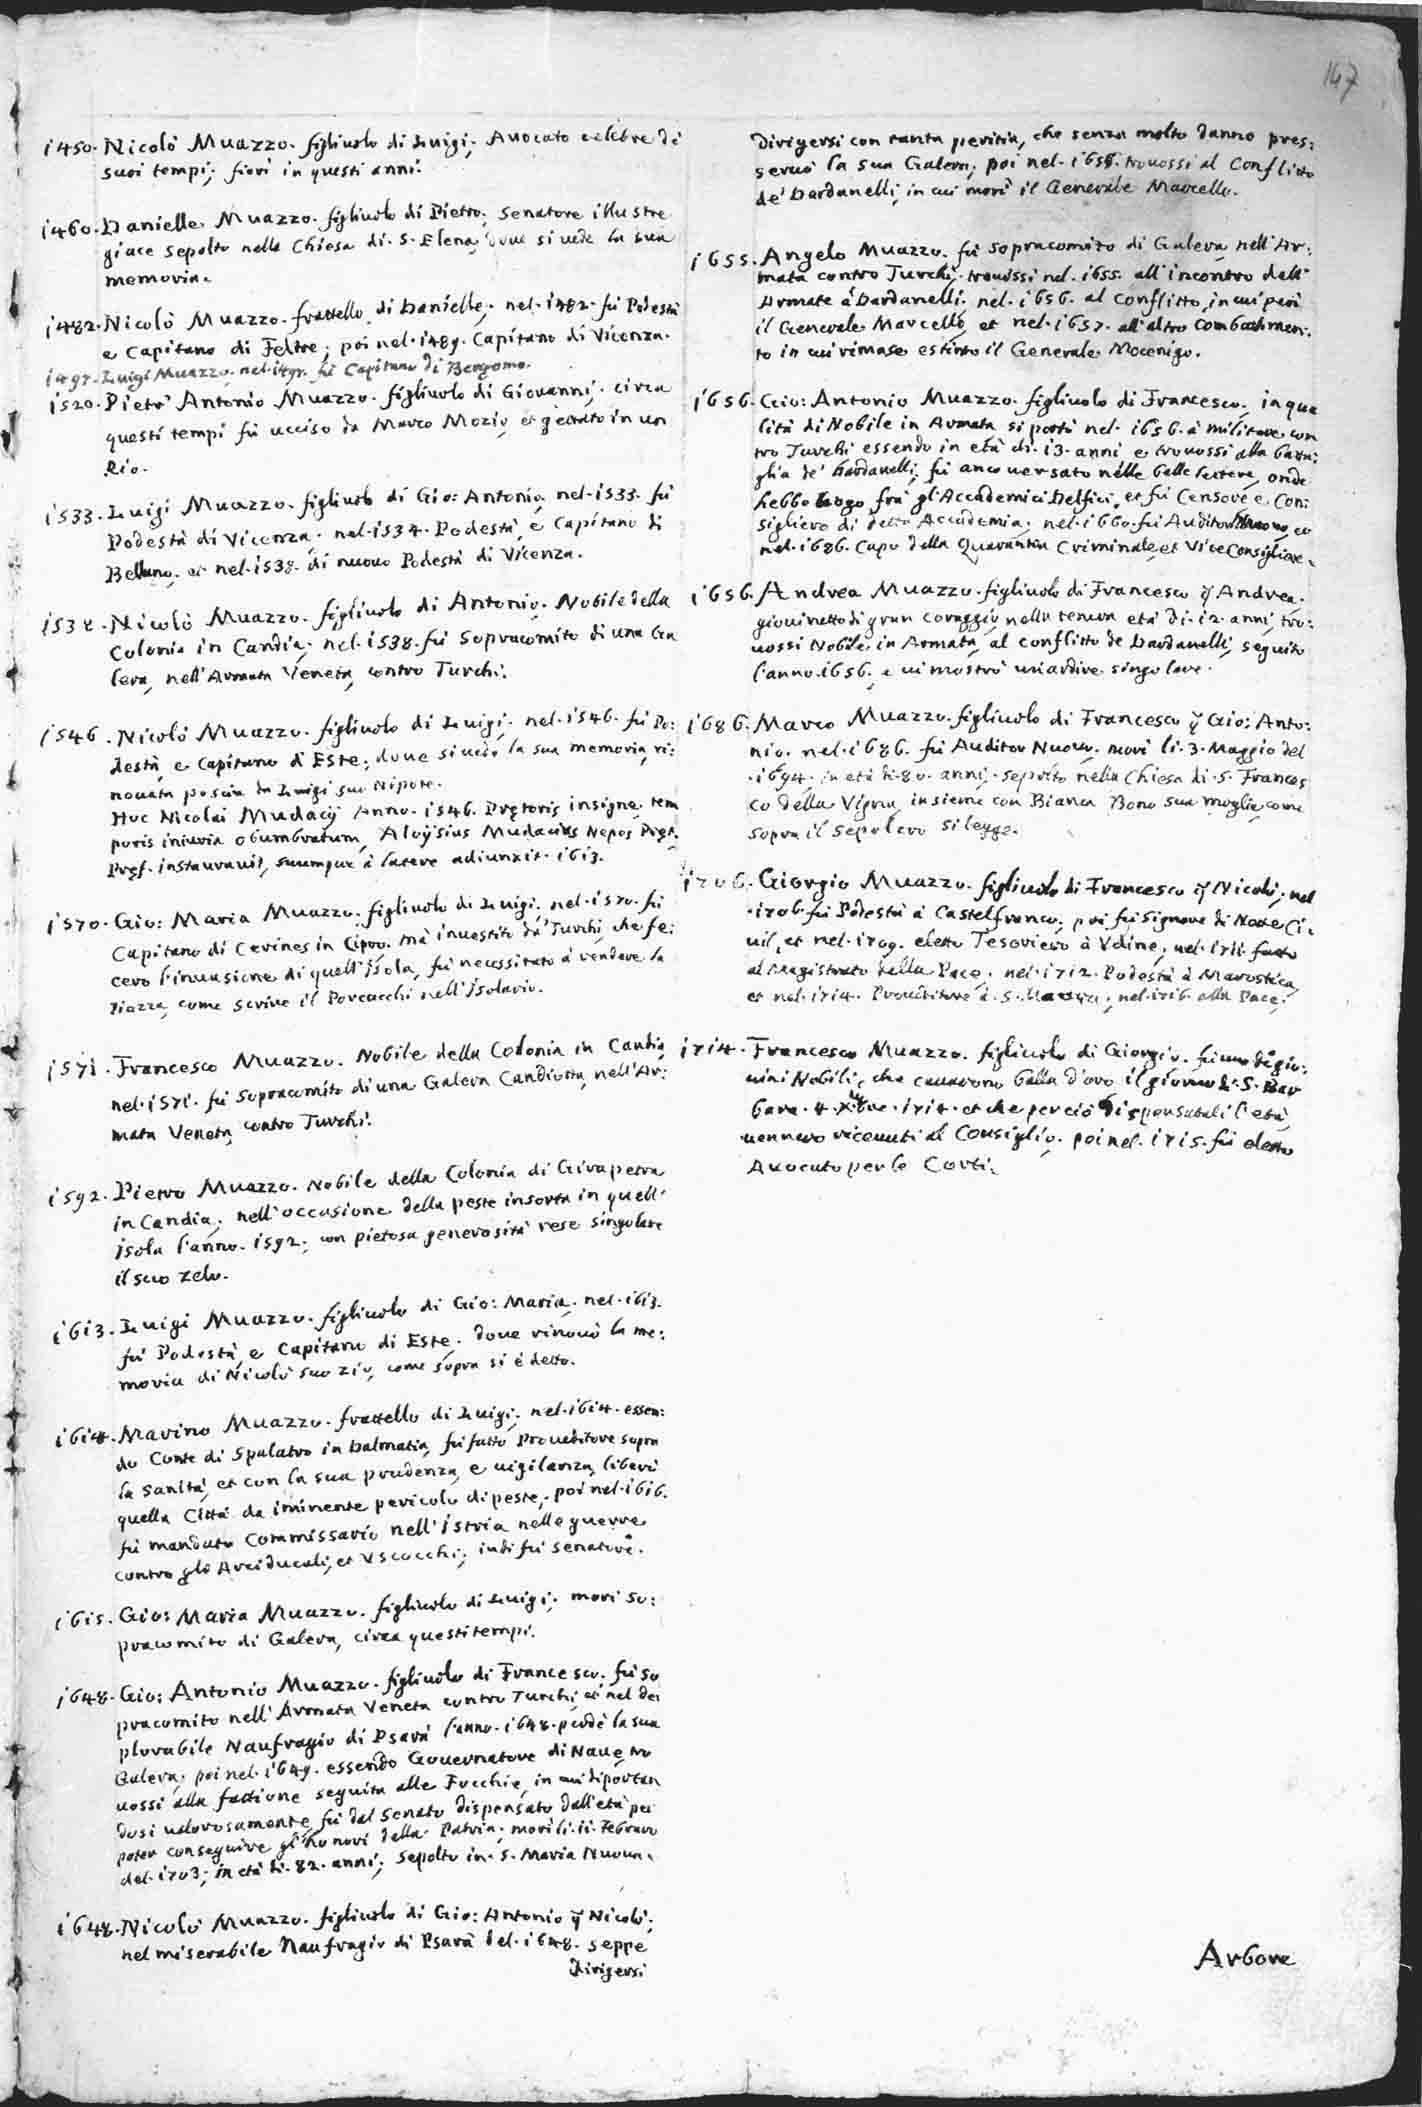 147
1450. Nicolò Muazzo. figliuolo di Luigi; Auocato celebre de'
suoi tempi; fiorì in questi anni.
1460. Danielle Muazzo. figliuolo di Pietro; Senatore illustre
giace sepolto nella Chiesa di S. Elena, doue si uede la sua
memoria.
1482. Nicolò Muazzo. frattello di Danielle; nel. 1482. fù Podestà
e Capitano di Feltre; poi nel. 1489. Capitano di Vicenza.
1497. Luigi Muazzo. nel. 1497. fù Capitano di Bergomo.
1520. Pietr' Antonio Muazzo. figliuolo di Giouanni; circa
questi tempi fù ucciso da Marco Mozio, et gettato in un
Rio.
1533. Luigi Muazzo. figliuolo di Gio: Antonio, nel. 1533. fù
Podestà di Vicenza; nel. 1534. Podestà, e Capitano di
Belluno; et nel. 1538. di nuouo Podestà di Vicenza.
1538. Nicolò Muazzo. figliuolo di Antonio. Nobile della
Colonia in Candia; nel. 1538. fù Sopracomito di una Ga
lera, nell'Armata Veneta, contro Turchi.
1546. Nicolò Muazzo. figliuolo di Luigi; nel. 1546. fù Po:
destà, e Capitano d'Este; doue si uede la sua memoria, ri:
nouata poscia da Luigi suo Nipote.
Hoc Nicolai Mudacij Anno. 1546. Prętoris insigne tem
poris iniuria obumbratum, Aloÿsius Mudacius Nepos Pręt.
Pręf. instaurauit, suumque à latere adiunxit. 1613.
1570. Gio: Maria Muazzo. figliuolo di Luigi; nel. 1570. fù
Capitano di Cerines in Cipro. mà inuestito da Turchi, che fe:
cero l'inuasione di quell'Isola, fù necessitato à rendere la
Piazza, come scriue il Porcacchi nell'Isolario.
1571. Francesco Muazzo. Nobile della Colonia in Candia,
nel. 1571. fù Sopracomito di una Galera Candiotta, nell'Ar:
mata Veneta, contro Turchi.
1592. Pietro Muazzo. Nobile della Colonia di Girapetra
in Candia; nell'occasione della peste insorta in quell'
Isola l'anno. 1592; con pietosa generosità rese singolare
il suo zelo.
1613. Luigi Muazzo. figliuolo di Gio: Maria; nel. 1613.
fù Podestà, e Capitano di Este; doue rinouò la me:
moria di Nicolò suo Zio, come sopra si è detto.
1614. Marino Muazzo. frattello di Luigi; nel. 1614. essen:
do Conte di Spalatro in Dalmatia, fù fatto Proueditore sopra
la Sanità, et con la sua prudenza, e uigilanza, liberò
quella Città da iminente pericolo di peste; poi nel. 1616.
fù mandato Commissario nell'Istria nelle guerre
contro gli Arciducali, et Vscocchi; indi fù senatore.
1615. Gio: Maria Muazzo. figliuolo di Luigi; morì So:
pracomito di Galera, circa questi tempi.
1648. Gio: Antonio Muazzo. figliuolo di Francesco. fù So
pracomito nell'Armata Veneta contro Turchi; et nel de
plorabile Naufragio di Psarà l'anno. 1648. perdè la sua
Galera; poi nel. 1649. essendo Gouernatore di Naue, tro
uossi alla fattione seguita alle Focchie, in cui diportan
dosi ualorosamente, fù dal Senato dispensato dall'età per
poter conseguire gl'honori della Patria; morì li. 11. Febraro
del. 1703; in età di. 82. anni; sepolto in. S. Maria Nuoua.
1648. Nicolò Muazzo. figliuolo di Gio: Antonio q̃ Nicolò;
nel miserabile Naufragio di Psarà del. 1648. seppe
dirigersi
dirigersi con tanta peritia, che senza molto danno pres:
seruò la sua Galera; poi nel. 1656. trouossi al Conflitto
de' Dardanelli, in cui morì il Generale Marcello.
1655. Angelo Muazzo. fù Sopracomito di Galera, nell'Ar:
mata contro Turchi; trouossi nel. 1655. all'incontro dell'
Armate à Dardanelli; nel. 1656. al Conflitto, in cui perì
il Generale Marcello, et nel. 1657. all'altro Combattimen:
to in cui rimase estinto il Generale Mocenigo.
1656. Gio: Antonio Muazzo. figliuolo di Francesco; in qua
lità di Nobile in Armata si portò nel. 1656. à militare con
tro Turchi essendo in età di. 13. anni e trouossi alla batta:
glia de' Dardanelli; fù anco uersato nelle belle lettere, onde
hebbe luogo frà gl'Accademici Delfici, et fù Censore e Con:
sigliero di detta Accademia; nel. 1660. fù Auditor Nuouo, et
nel. 1686. Capo della Quarantia Criminale, et Vice Consigliere.
1656. Andrea Muazzo. figliuolo di Francesco q̃ Andrea.
giouinetto di gran coraggio, nella tenera età di. 12. anni, tro:
uossi Nobile in Armata, al conflitto de Dardanelli, seguito
l'anno. 1656. e ui mostrò un'ardire singolare.
1686. Marco Muazzo. figliuolo di Francesco q̃ Gio: Anto:
nio. nel. 1686. fù Auditor Nuouo. morì li. 3. Maggio del
.1694. in età di. 80. anni; sepolto nella Chiesa di. S. Frances
co della Vigna, insieme con Bianca Bono sua moglie, come
sopra il sepolcro si legge.
1706. Giorgio Muazzo. figliuolo di Francesco q̃ Nicolò; nel
.1706. fù Podestà à Castelfranco; poi fù Signore di Notte Ci:
uil, et nel. 1709. eletto Tesoriero à Vdine; nel. 1711. fatto
al Magistrato della Pace; nel. 1712. Podestà à Marostica,
et nel. 1714. Proueditore à. S. Maura; nel. 1716. alla Pace.
1714. Francesco Muazzo. figliuolo di Giorgio. fù uno de gio:
uini Nobili, che cauarono balla d'oro il giorno di. S. Bar
bara. 4. Xbre. 1714. et che perciò dispensatali l'età,
uennero riceuuti al Consiglio. poi nel. 1715. fù eletto
Auocato per le Corti.
Arbore